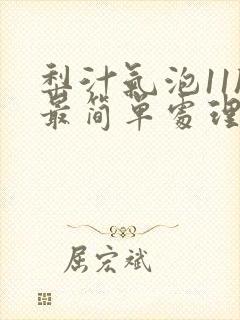 梨汁氣泡11
最簡單處理
屈宏斌